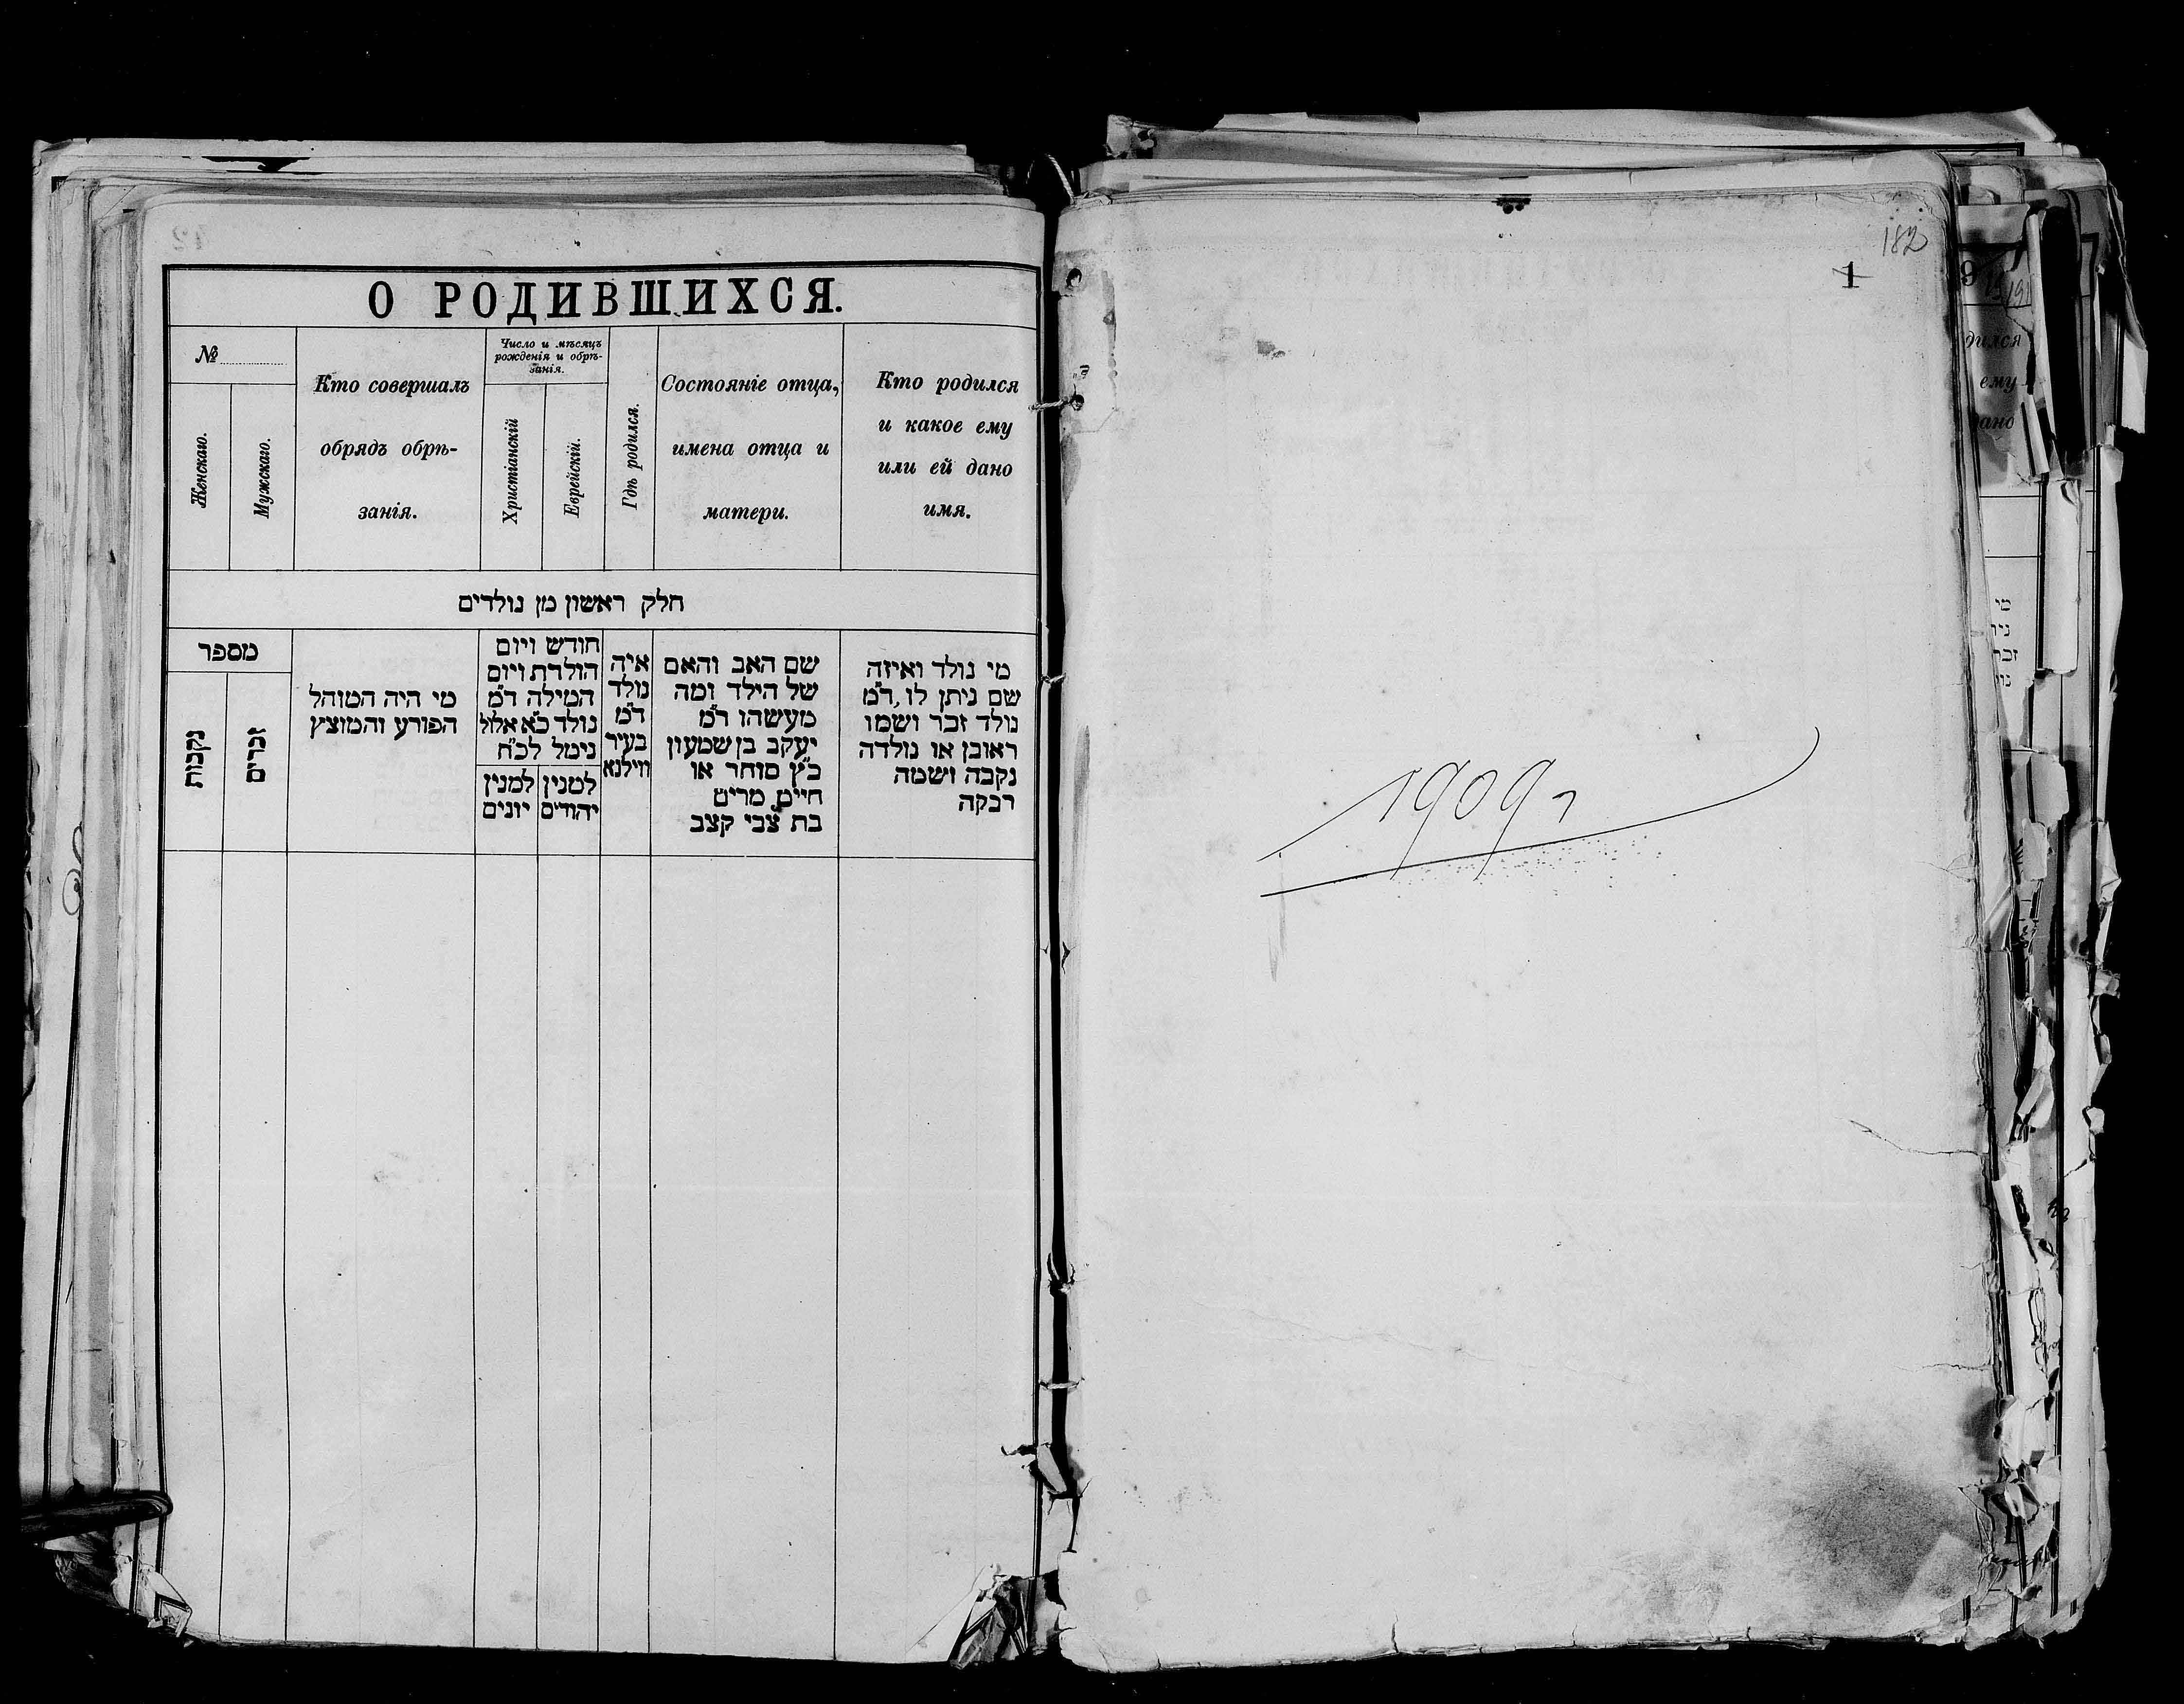 О РОДИВШИХСЯ.
№
Женскаго.
Мужскаго.
Кто совершалъ
обрядъ обрѣ-
занія.
Число и мѣсяцъ
рожденія и обрѣ-
занія.
Христіанскій
Еврейскій.
Гдѣ родился.
Состояніе отца,
имена отца и
матери.
Кто родился
и какое ему
или ей дано
имя.
חלק ראשון מן נולדים
מספר
נקבות
זכרים
מי היה המוהל
הפורע והמוצץ
חודש ויום
הולדת ויום
המילה ד״מ
נולד כ״א אלול
נימל לכ״ח
למנין
יונים
למנין
יהודים
איה
נולד
ד״מ
בעיר
ווילנא
שם האב והאם
של הילד ומה
מעשהו ד״מ
יעקב בן שמעון
כ״ץ סוחר או
חיים מרים
בת צבי קצב
מי נולד ואיזה
שם ניתן לו, ד״מ
נולד זכר ושמו
ראובן או נולדה
נקבה ושמה
רבקה
182
1
1909 г
9
дился
ему
дано